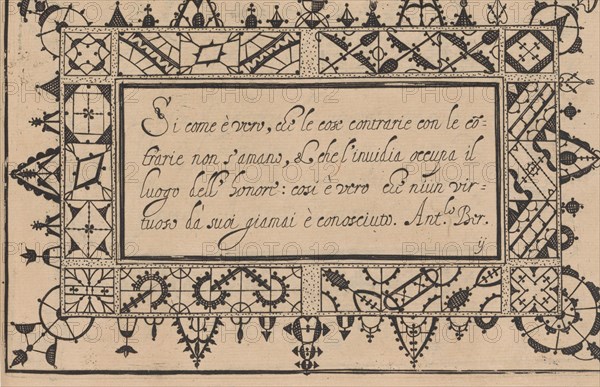 Si come è vero, che le cose contrarie con le cō-
trarie non s'amano, & che l'inuidia occupa il
luogo dell' honore: così è vero che niun vir-
tuoso da suoi giamai è conosciuto. Ant.lo Ber.
ij